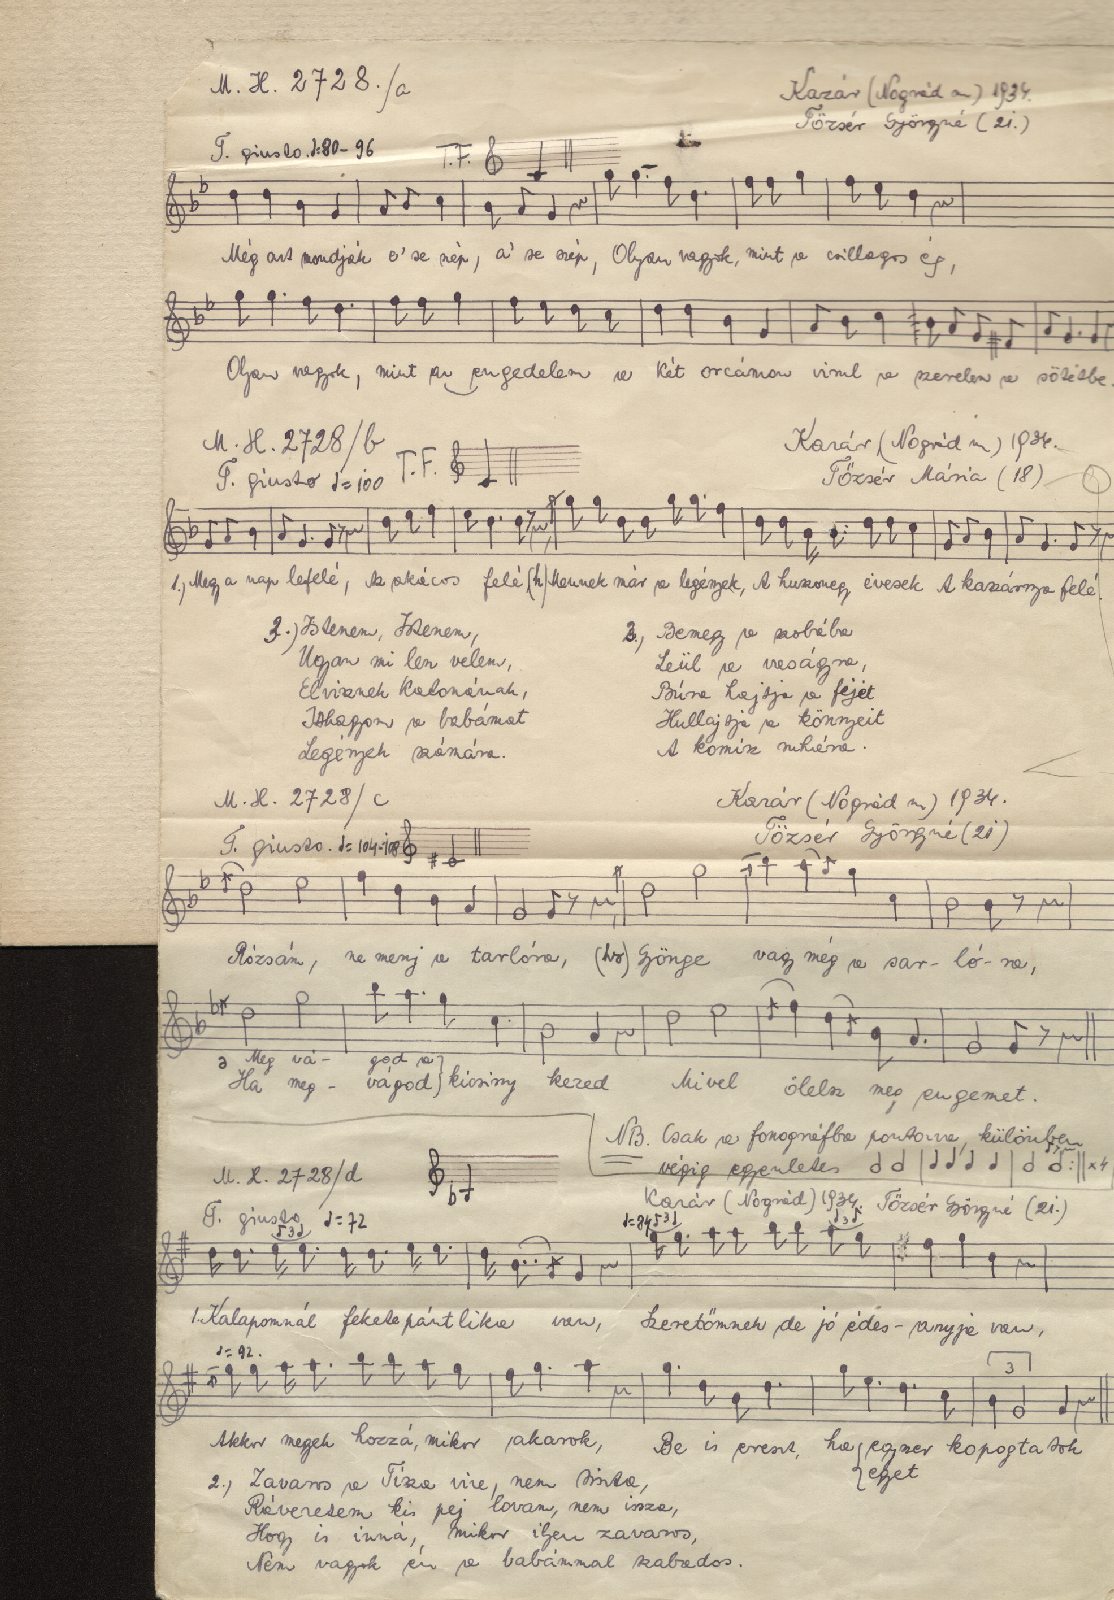 M. H. 2728./a
Kazár (Nográd m) 1934.
Tőzsér Györgyné (21.)
T. giusto. ♩=80-96
T.F.
Még azt mondják e' se szép, a' se szép, Olyan vagyok, mint a csillagos ég,
Olyan vagyok, mint az engedelem a két orcámon virul a szerelem a sötétbe.
M. H. 2728/b
Kazár (Nográd m) 1934.
T. giusto ♩=100
T.F.
Tőzsér Mária (18)
1., Megy a nap lefelé, Az akácos felé (h) Mennek már a legények, A huszonegy évesek A kaszárnya felé.
2.) Istenem, Istenem,
Ugyan mi len velem,
Elvisznek katonának,
Itthagyom a babámat
Legények számára.
3., Bemegy a szobába
Leül a vaságyra,
Búra hajtja a fejét
Hullajtja a könnyeit
A komisz ruhára.
M. H. 2728/c
Kazár (Nográd m) 1934.
T. giusto. ♩=104-108
Tőzsér Györgyné (21)
Rózsám, ne menj a tarlóra, (ha) Gyönge vagy még a sar-ló-ra,
Meg vá- god a
Ha meg- vágod } kicsiny kezed Mivel ölelsz meg engemet.
NB. Csak a fonográfba pontozva, különben
végig egyenletes
x4
M. H. 2728/d
Kazár (Nográd) 1934. Tőzsér Györgyné (21.)
T. giusto ♩=72
♩=84
1. Kalapomnál feketepántlika van, Szeretőmnek de jó édes-anyja van,
♩=92.
3
Akkor megyek hozzá, mikor akarok, Be is ereszt, ha { egyszer kopogtatok
eggyet
2., Zavaros a Tisza vize, nem tiszta,
Ráveretem kis pej lovam, nem issza,
Hogy is inná, mikor ilyen zavaros,
Nem vagyok én a babámmal szabados.